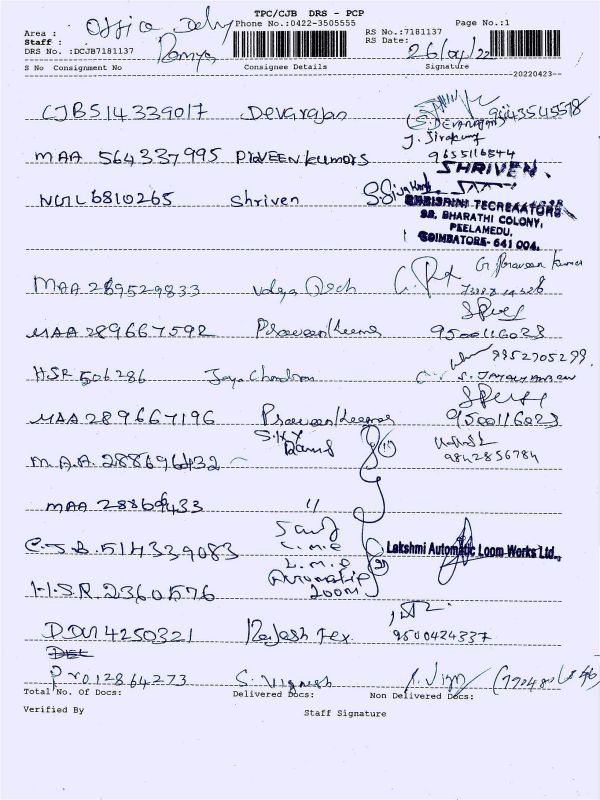 TPC/CJB DRS - PCP
Area : Office Dely Phone No.:0422-3505555 Page No.:1
Staff : Ramya RS No.:7181137
DRS No. :DCJB7181137 RS Date: 26/04/22
S No Consignment No Consignee Details Signature
--20220423--
CJB514339017 Devarajan (S.DEVARAJAN) 9443545578
J. Sivakumar
9655116544
MAA 564337995 PRAVEEN kumars
SHRIVEN.
NGL 6810265 Shriven
SHRISHINI TECREAATORS
SB, BHARATHI COLONY,
PEELAMEDU,
COIMBATORE- 641 004.
MAA 289529833 G. Praveen kumar
MAA 289667592 9500116023
9952705299.
HSR 506286 Jaya Chandran
MAA 289667196 9500116023
M.A.A. 288696432 9842856784
MAA 28869433 "
C.J.B. 514339083 L.M.W Lakshmi Automatic Loom Works Ltd.,
L.M.W
Automatic
H.S.R 2360576 Loom
DDN4250321 Rajesh Tex. 9500424337
Del
PRO12864273 S. Vignesh
Total No. Of Docs: Delivered Docs: Non Delivered Docs:
Verified By Staff Signature